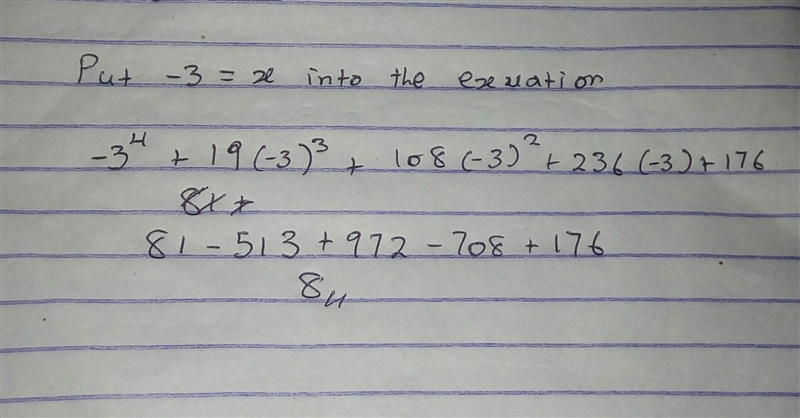 Put -3 = x into the exuation
-3⁴ + 19(-3)³ + 108(-3)² + 236(-3) + 176
81 - 513 + 972 - 708 + 176
8